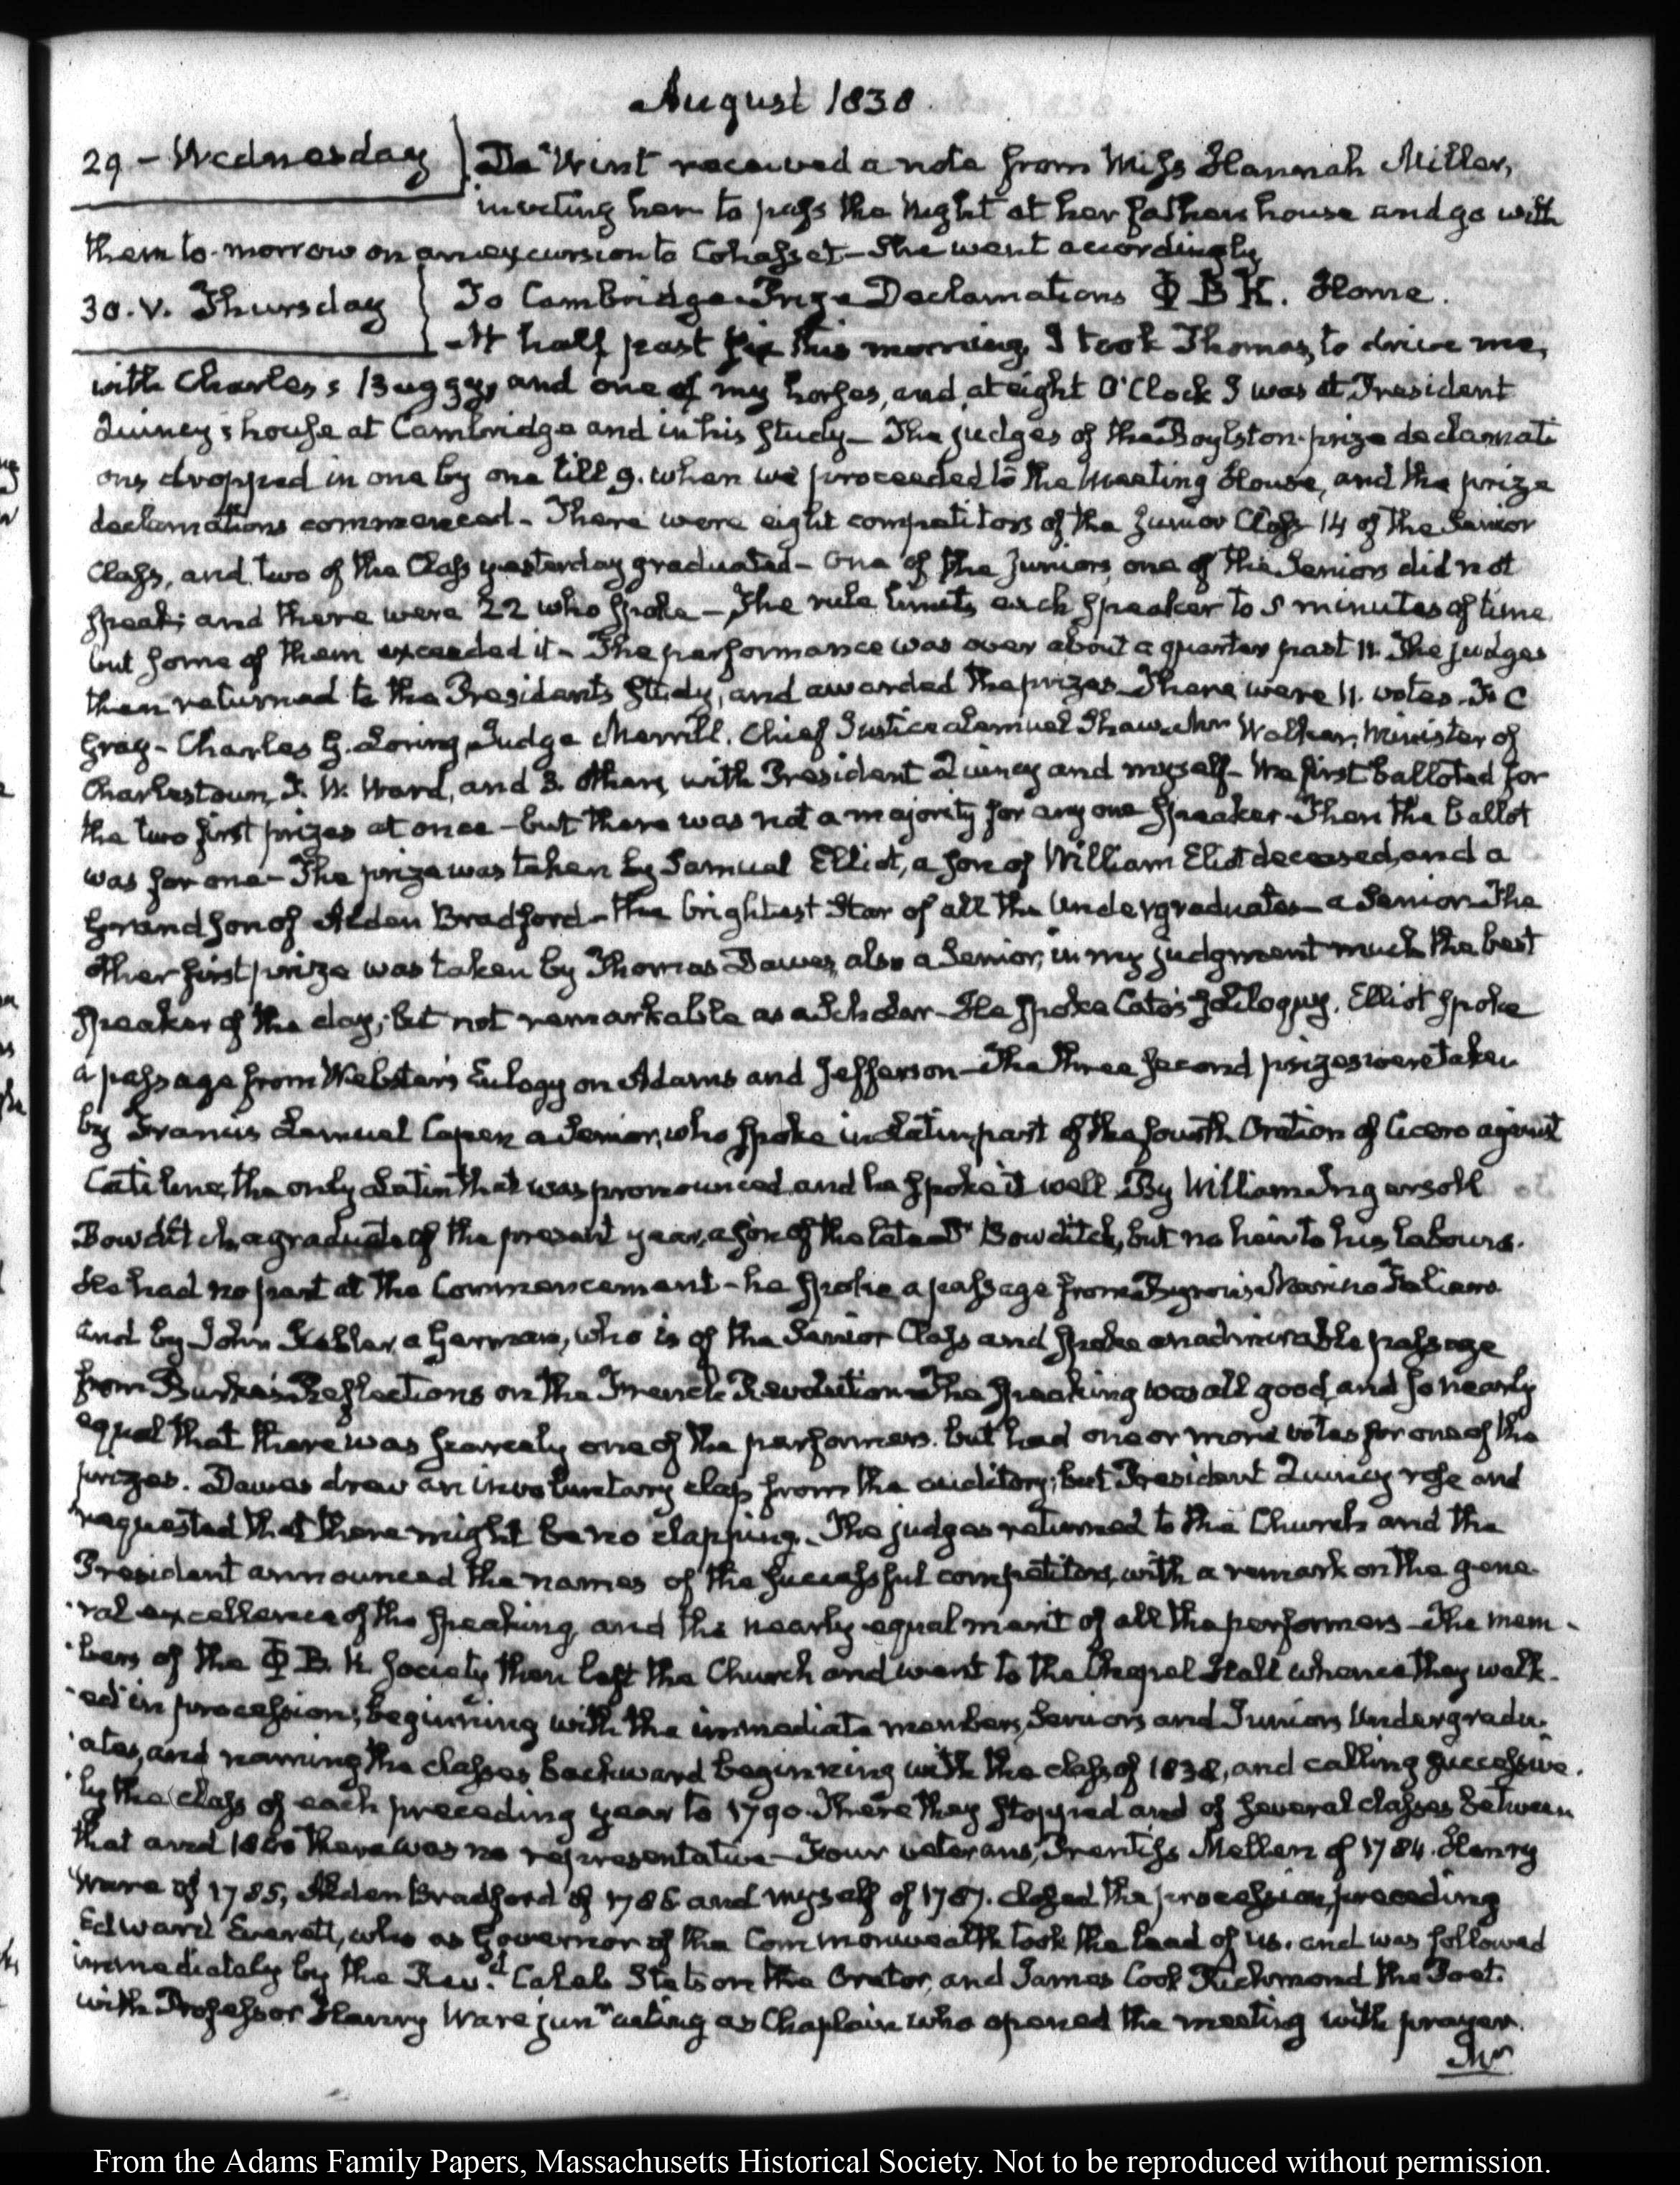 August 1838.
29 - Wednesday
De Wint received a note from Miss Hannah Miller,
inviting her to pass the Night at her fathers house and go with
them to-morrow on an excursion to Cohasset - She went accordingly
30. V. Thursday
To Cambridge. Prize Declamations Φ B K. Home.
At half past six this morning, I took Thomas, to drive me,
with Charles's Buggy, and one of my horses, and at eight O'Clock I was at President
Quincy's house at Cambridge and in his study - The judges of the Boylston prize declamati
ons dropped in one by one till 9. when we proceeded to the Meeting House, and the prize
declamations commenced - There were eight competitors of the Junior Class 14 of the Senior
Class, and two of the Class yesterday graduated - One of the Juniors, one of the Seniors did not
speak; and there were 22 who spoke - The rule limits each speaker to 5 minutes of time
but some of them exceeded it - The performance was over about a quarter past 11. The judges
then returned to the President's study, and awarded the prizes - There were 11. votes. F. C
Gray - Charles G. Loring, Judge Merrill, Chief Justice Lemuel Shaw, Mr Walker, Minister of
Charlestown, J. W. Ward, and 3. others, with President Quincy and myself - We first balloted for
the two first prizes at once - but there was not a majority for any one speaker - Then the ballot
was for one - The prize was taken by Samuel Elliot, a son of William Eliot deceased, and a
Grandson of Alden Bradford - the brightest Star of all the Undergraduates - a Senior - The
other first prize was taken by Thomas Dawes, also a Senior, in my judgment much the best
speaker of the day; but not remarkable as a Scholar - He spoke Cato's soliloquy. Elliot spoke
a passage from Webster's Eulogy on Adams and Jefferson - The three second prizes were taken
by Francis Lemuel Capen a Senior, who spoke in Latin, part of the fourth Oration of Cicero against
Catiline, the only Latin that was pronounced and he spoke it well. By William Ingersoll
Bowditch, a graduate of the present year, a son of the late Dr Bowditch, but no heir to his labours.
He had no part at the Commencement - he spoke a passage from Byron's Marino Faliero
and by John Kebler, a German, who is of the Senior Class and spoke an admirable passage
from Burke's Reflections on the French Revolution - The speaking was all good, and so nearly
equal that there was scarcely one of the performers. but had one or more votes for one of the
prizes. Dawes drew an involuntary clap from the auditory; but President Quincy rose and
requested that there might be no clapping. The judges returned to the Church and the
President announced the names of the successful competitors, with a remark on the gene-
-ral excellence of the speaking, and the nearly equal merit of all the performers - The mem-
-bers of the Φ B. K. Society then left the Church and went to the Chapel Hall whence they walk-
-ed in procession; beginning with the immediate members, Seniors and Juniors Undergradu-
-ates, and naming the classes backward beginning with the class of 1838, and calling successive-
-ly the class of each preceding year to 1790. There they stopped and of several classes between
that and 1800 there was no representative - Four veterans, Prentiss Mellen of 1784. Henry
Ware of 1785, Alden Bradford of 1786 and myself of 1787. closed the procession, preceding
Edward Everett, who as Governor of the Commonwealth took the lead of us. and was followed
immediately by the Revd. Caleb Stetson the Orator, and James Cook Richmond the Poet.
with Professor Henry Ware junr acting as Chaplain who opened the meeting with prayer.
Mr
From the Adams Family Papers, Massachusetts Historical Society. Not to be reproduced without permission.